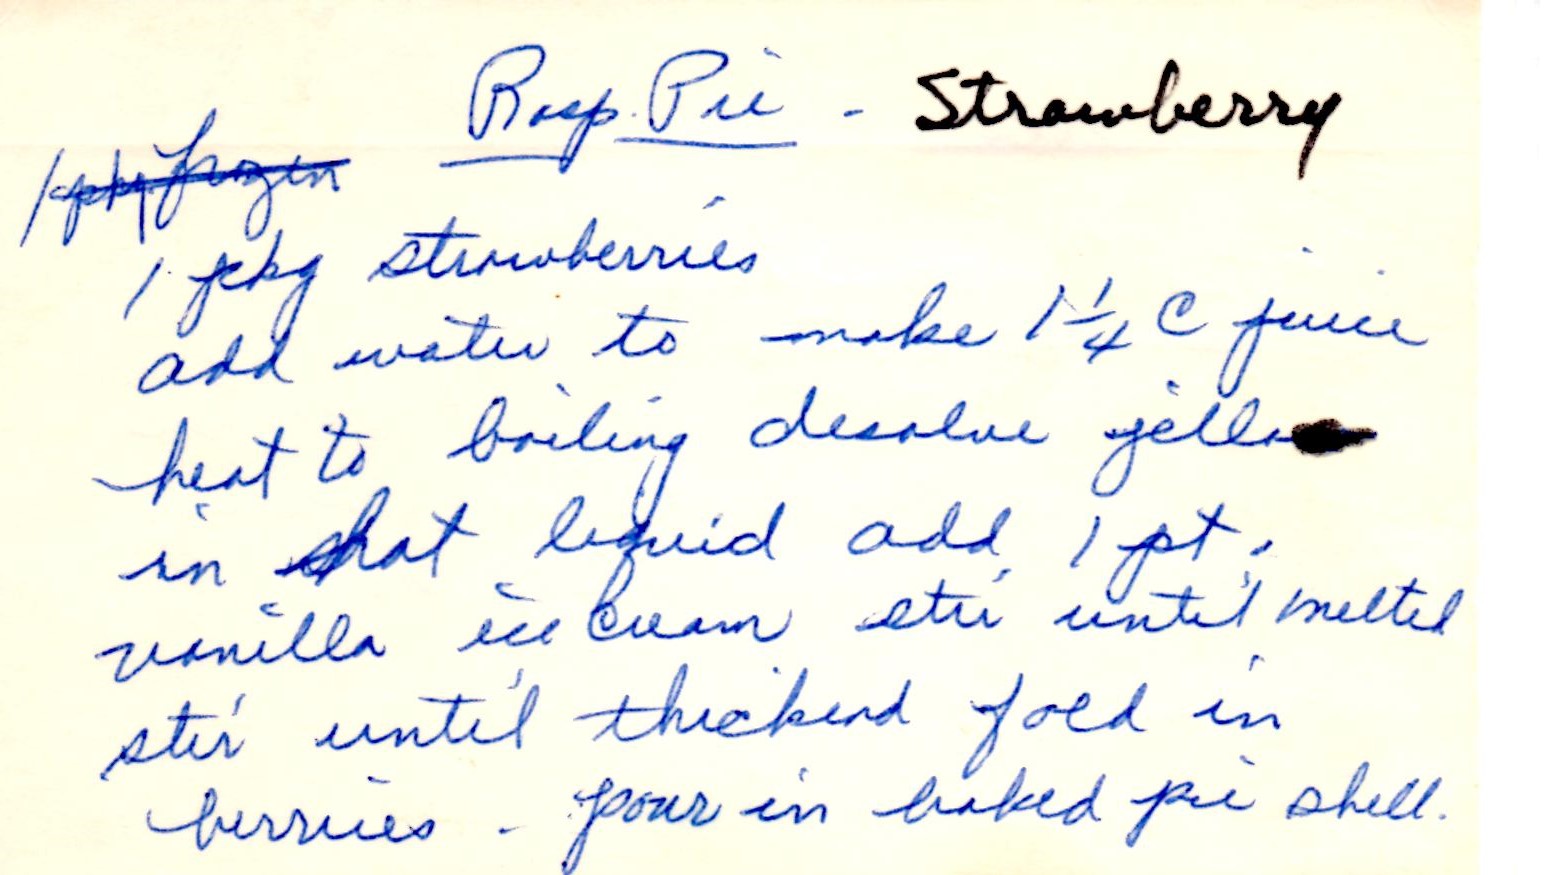 Rasp. Pie - Strawberry
1 pkg frozen
1 pkg strawberries
add water to make 1 1/4 C juice
heat to boiling desolve jello
in hot liquid add 1 pt.
vanilla ice cream stir until melted
stir until thickend fold in
berries - pour in baked pie shell.